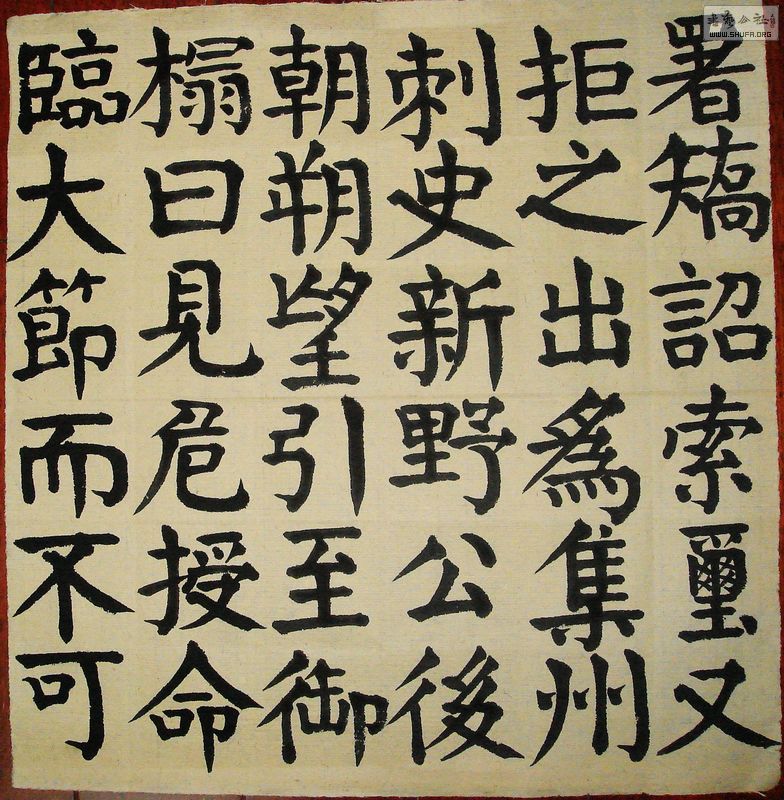 署矯詔索璽又
拒之出為集州
刺史新野公後
朝朔望引至御
榻曰見危授命
臨大節而不可
书艺公社
WWW.SHUFA.ORG